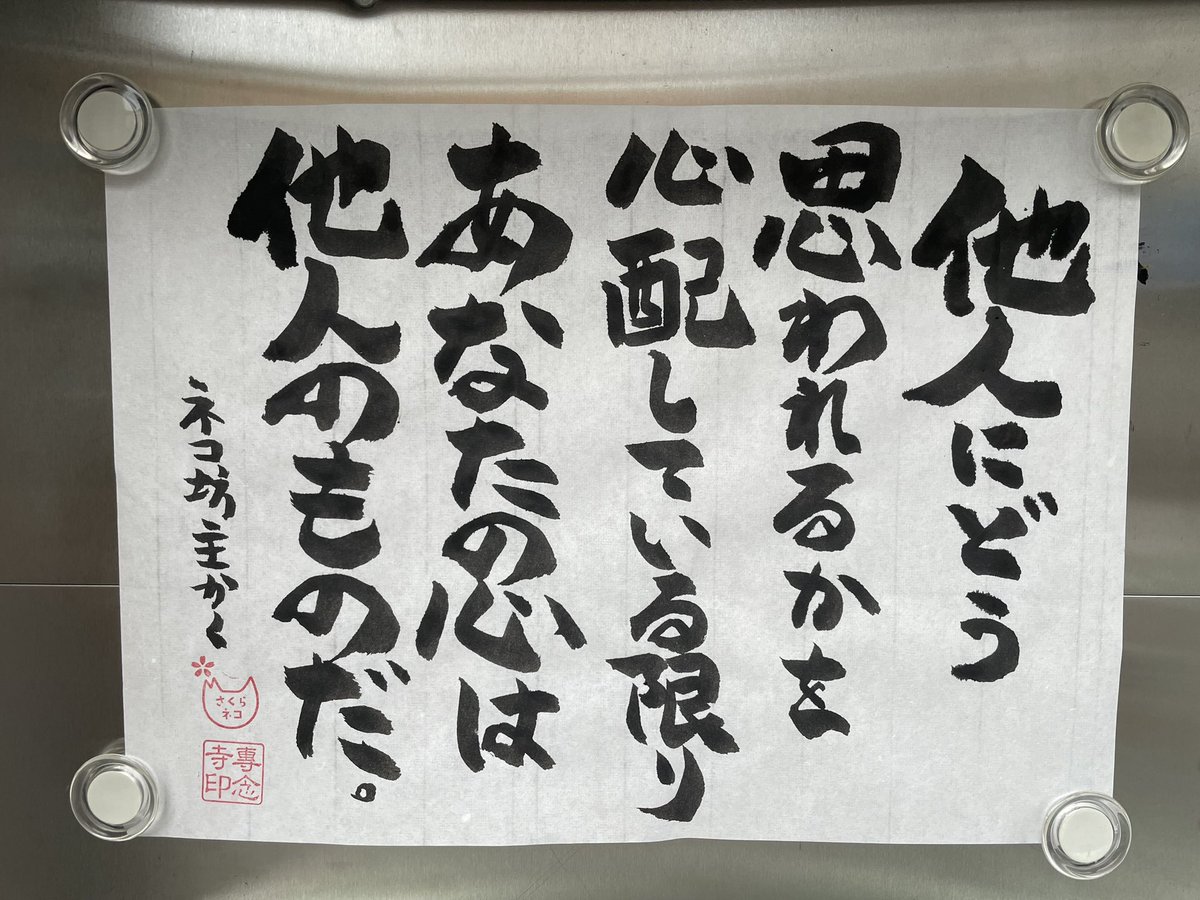 他人にどう
思われるかを
心配している限り
あなたの心は
他人のものだ。
ネコ坊主かく
さくら
ネコ
専念
寺印